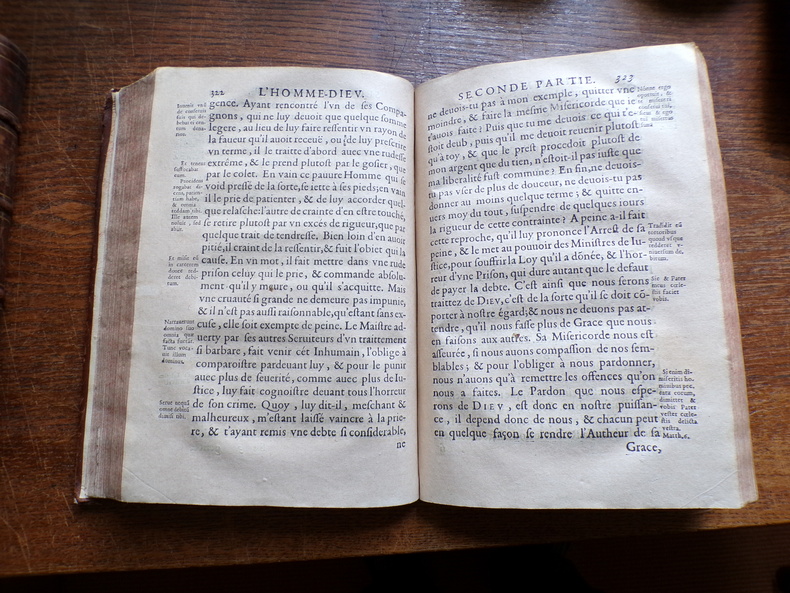 322 L'HOMME-DIEV.
gence. Ayant rencontré l'vn de ses Compa-
gnons, qui ne luy deuoit que quelque somme
legere, au lieu de luy faire ressentir vn rayon de
la faueur qu'il auoit receuë, ou de luy prescrire
vn terme, il le traitte d'abord auec vne rudesse
extréme, & le prend plutost par le gosier, que
par le colet. En vain ce pauure Homme qui se
void pressé de la sorte, se iette à ses pieds; en vain
il le prie de patienter, & de luy accorder quel-
que relasche: l'autre de crainte d'en estre touché,
se retire plutost par vn excés de rigueur, que par
quelque trait de tendresse. Bien loin d'en auoir
pitié, il craint de la ressentir, & fuit l'obiet qui la
cause. En vn mot, il fait mettre dans vne rude
prison celuy qui le prie, & commande absolu-
ment qu'il y meure, ou qu'il s'acquitte. Mais
vne cruauté si grande ne demeure pas impunie,
& il n'est pas aussi raisonnable, qu'estant sans ex-
cuse, elle soit exempte de peine. Le Maistre ad-
uerty par ses autres Seruiteurs d'vn traittement
si barbare, fait venir cét Inhumain, l'oblige à
comparoistre pardeuant luy, & pour le punir
auec plus de seuerité, comme auec plus de Iu-
stice, luy fait cognoistre deuant tous l'horreur
de son crime. Quoy, luy dit-il, meschant &
malheureux, m'estant laissé vaincre à la prie-
re, & t'ayant remis vne debte si considerable,
ne
Et tenens
suffocabat
eum.
Procidens
rogabat
Et misit eũ
in carcerem
donec red-
deret debi-
tum.
Narrauerunt
domino suo
omnia quæ
facta fuerãt.
Tunc voca-
uit illum
dominus.
Serue nequã
omne debitũ
dimisi tibi.
SECONDE PARTIE. 323
ne deuois-tu pas à mon exemple, quitter vne
moindre, & faire la mesme Misericorde que ie
t'auois faite? Puis que tu me deuois ce qui t'e-
stoit deub, puis qu'il me deuoit reuenir plutost
qu'à toy, & que le prest procedoit plutost de
mon argent que du tien, n'estoit-il pas iuste que
ma liberalité fust commune? En fin, ne deuois-
tu pas vser de plus de douceur, ne deuois-tu pas
donner au moins quelque terme; & quitte en-
uers moy du tout, suspendre de quelques iours
la rigueur de cette contrainte? A peine a-il fait
cette reproche, qu'il luy prononce l'Arrest de sa
peine, & le met au pouuoir des Ministres de Iu-
stice, pour souffrir la Loy qu'il a dõnée, & l'hor-
reur d'vne Prison, qui dure autant que le defaut
de payer la debte. C'est ainsi que nous serons
traittez de DIEV, c'est de la sorte qu'il se doit cõ-
porter à nostre égard; & nous ne deuons pas at-
tendre, qu'il nous fasse plus de Grace que nous
en faisons aux autres. Sa Misericorde nous est
asseurée, si nous auons compassion de nos sem-
blables; & pour l'obliger à nous pardonner,
nous n'auons qu'à remettre les offences qu'on
nous a faites. Le Pardon que nous espe-
rons de DIEV, est donc en nostre puissan-
ce, il depend donc de nous, & chacun peut
en quelque façon se rendre l'Autheur de sa
Grace,
Nonne ergo
oportuit, &
te misereri
Tradidit eũ
tortoribus
quoad vsque
redderet v-
niuersum de-
bitum.
Sic & Pater
meus cœle-
stis faciet
vobis.
Si enim di-
miseritis ho-
minibus pec-
cata eorum,
dimittet &
vobis Pater
vester cœle-
stis delicta
vestra.
Matth. 6.